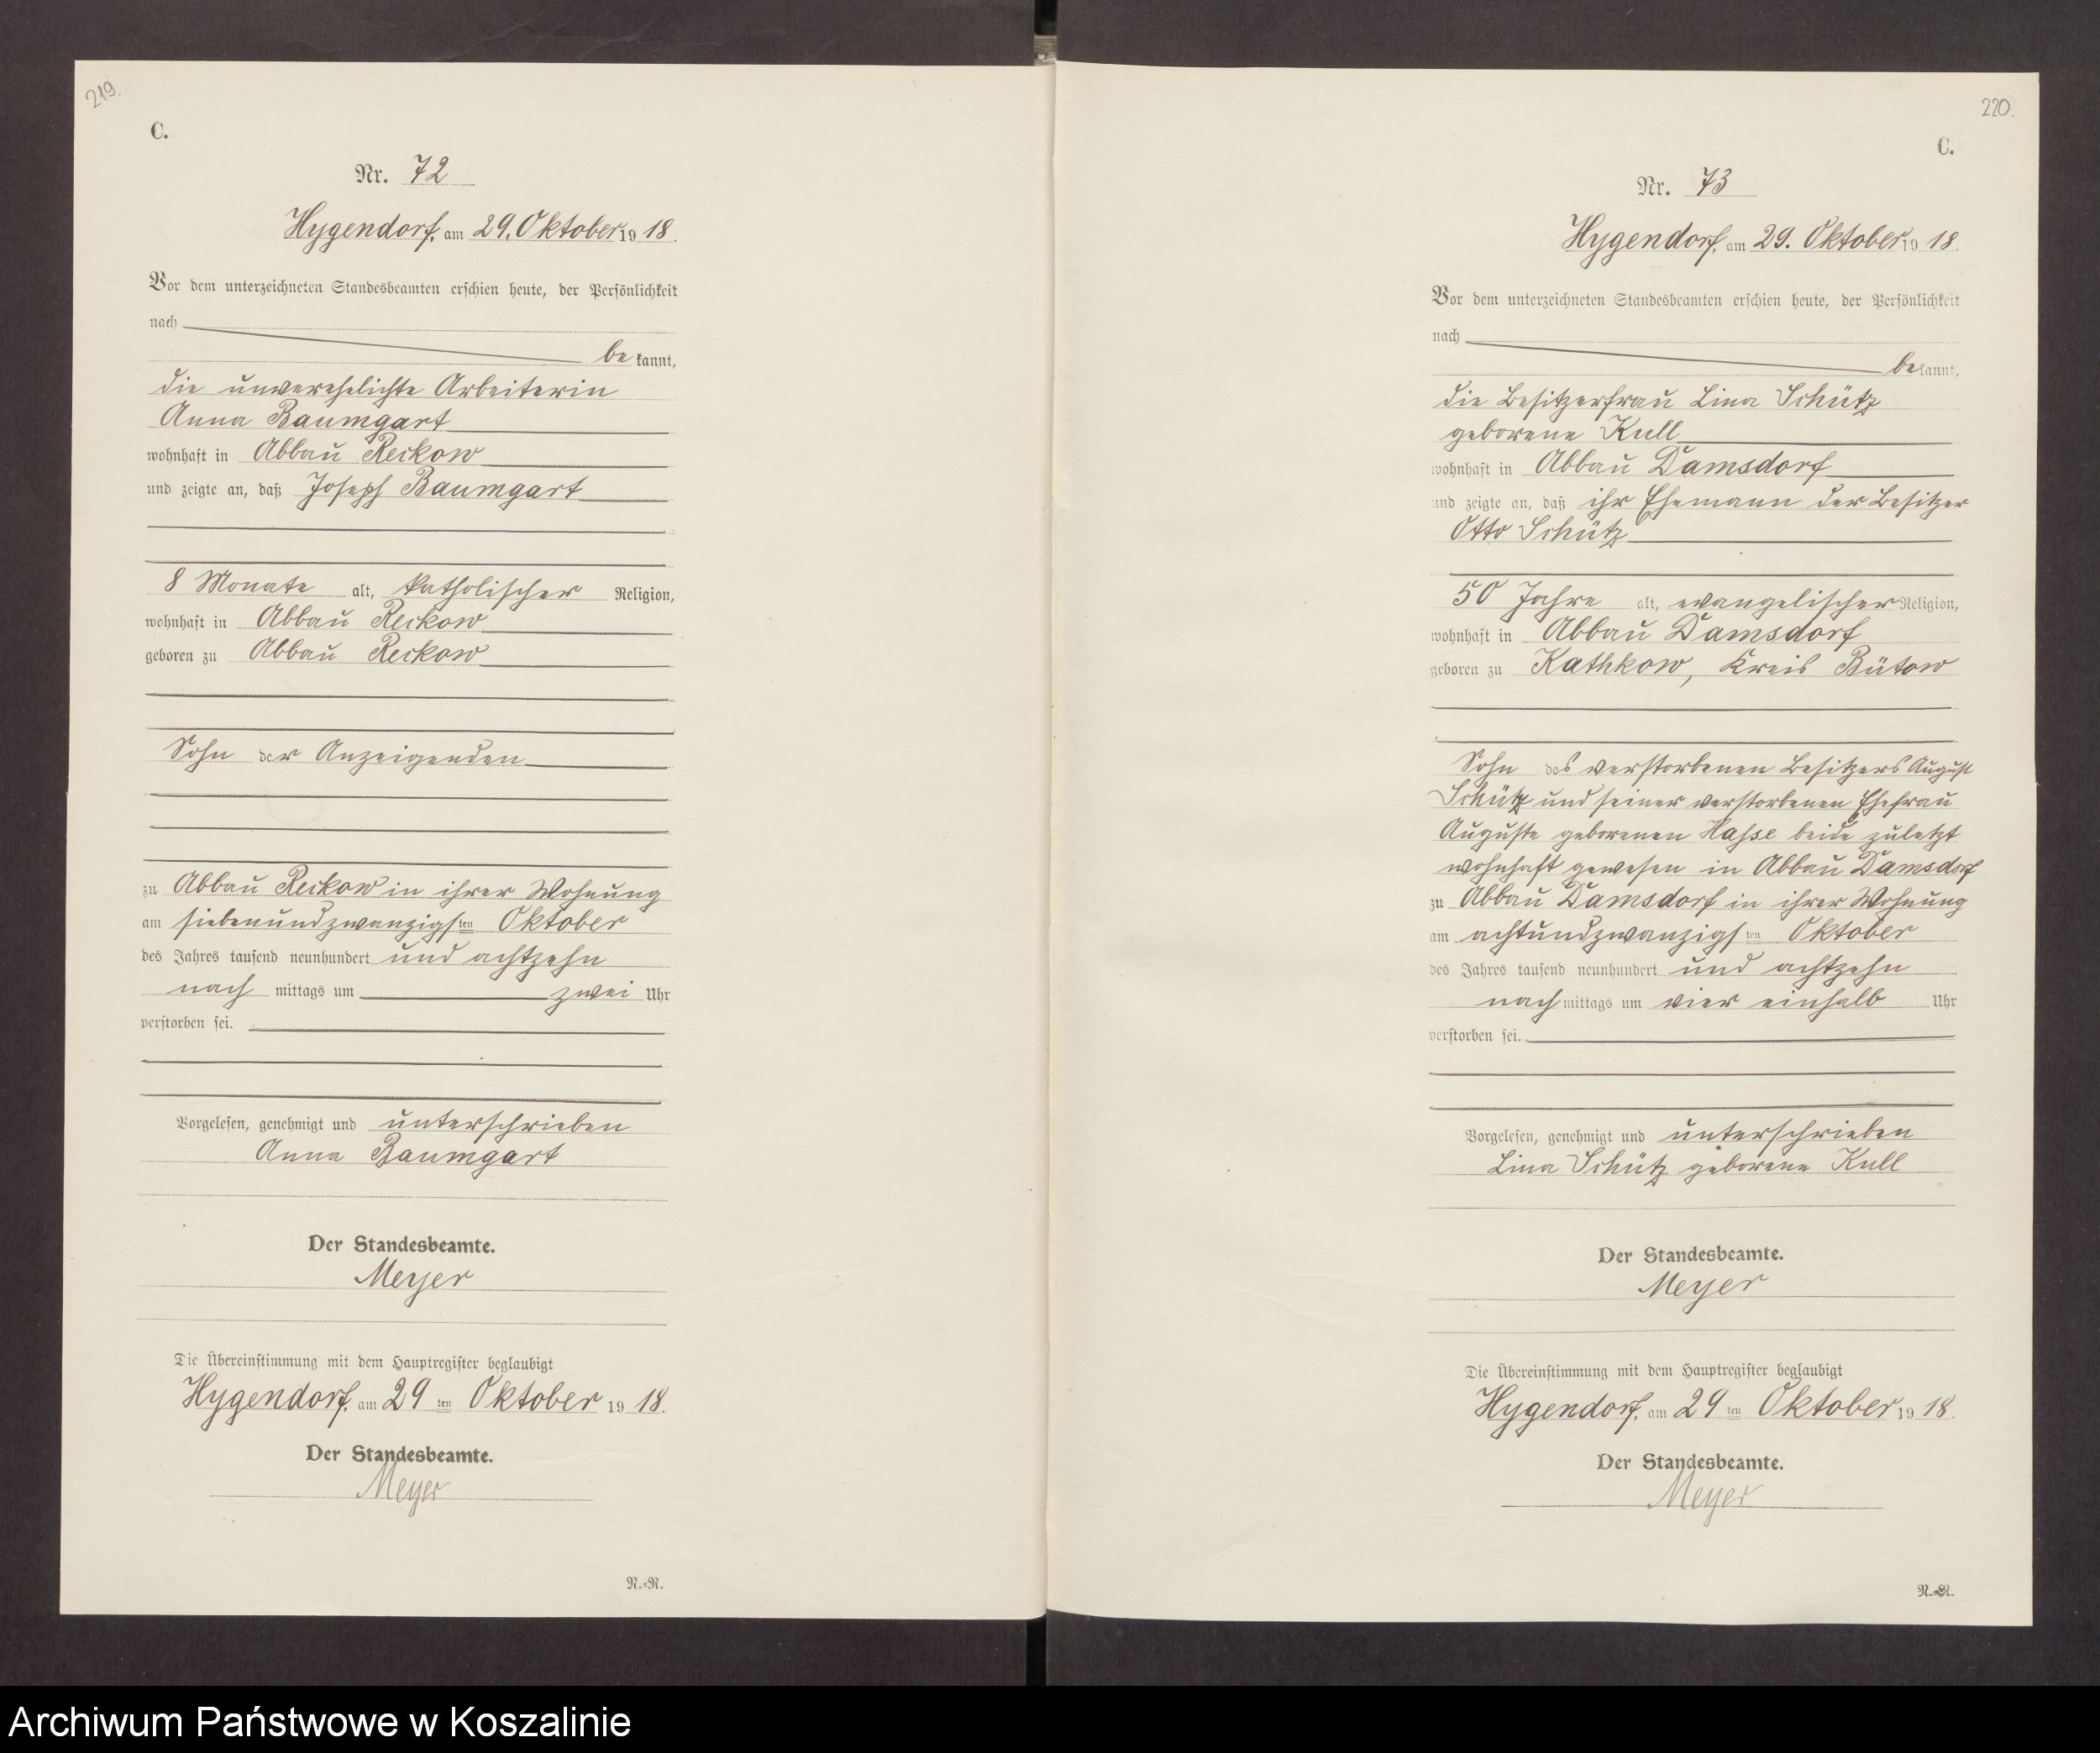 219.
C.
Nr. 72
Hygendorf, am 29. Oktober 1918.
Vor dem unterzeichneten Standesbeamten erschien heute, der Persönlichkeit
nach
bekannt,
die unverehelichte Arbeiterin
Anna Baumgart
wohnhaft in Abbau Reckow
und zeigte an, daß Joseph Baumgart
8 Monate alt, katholischer Religion,
wohnhaft in Abbau Reckow
geboren zu Abbau Reckow
Sohn der Anzeigenden
zu Abbau Reckow in ihrer Wohnung
am siebenundzwanzigsten Oktober
des Jahres tausend neunhundert und achtzehn
nach mittags um zwei Uhr
verstorben sei.
Vorgelesen, genehmigt und unterschrieben
Anna Baumgart
Der Standesbeamte.
Meyer
Die Übereinstimmung mit dem Hauptregister beglaubigt
Hygendorf, am 29ten Oktober 1918.
Der Standesbeamte.
Meyer
N.=N.
220.
C.
Nr. 73
Hygendorf, am 29. Oktober 1918.
Vor dem unterzeichneten Standesbeamten erschien heute, der Persönlichkeit
nach
bekannt,
die Besitzerfrau Lina Schütz
geborene Kull
wohnhaft in Abbau Damsdorf
und zeigte an, daß ihr Ehemann der Besitzer
Otto Schütz
50 Jahre alt, evangelischer Religion,
wohnhaft in Abbau Damsdorf
geboren zu Kathkow, Kreis Bütow
Sohn des verstorbenen Besitzers August
Schütz und seiner verstorbenen Ehefrau
Auguste geborenen Hasse beide zuletzt
wohnhaft gewesen in Abbau Damsdorf
zu Abbau Damsdorf in ihrer Wohnung
am achtundzwanzigsten Oktober
des Jahres tausend neunhundert und achtzehn
nach mittags um vier einhalb Uhr
verstorben sei.
Vorgelesen, genehmigt und unterschrieben
Lina Schütz geborene Kull
Der Standesbeamte.
Meyer
Die Übereinstimmung mit dem Hauptregister beglaubigt
Hygendorf, am 29ten Oktober 1918.
Der Standesbeamte.
Meyer
N.=N.
Archiwum Państwowe w Koszalinie